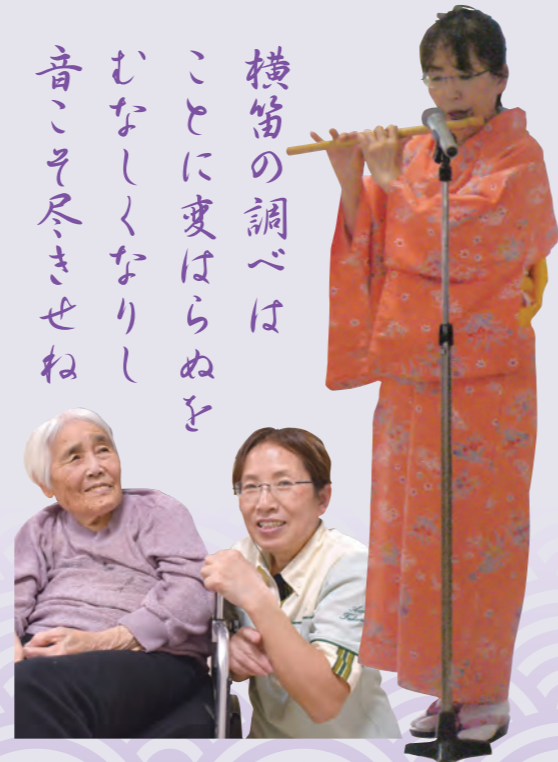 横笛の調べは
ことに変はらぬを
むなしくなりし
音こそ尽きせね